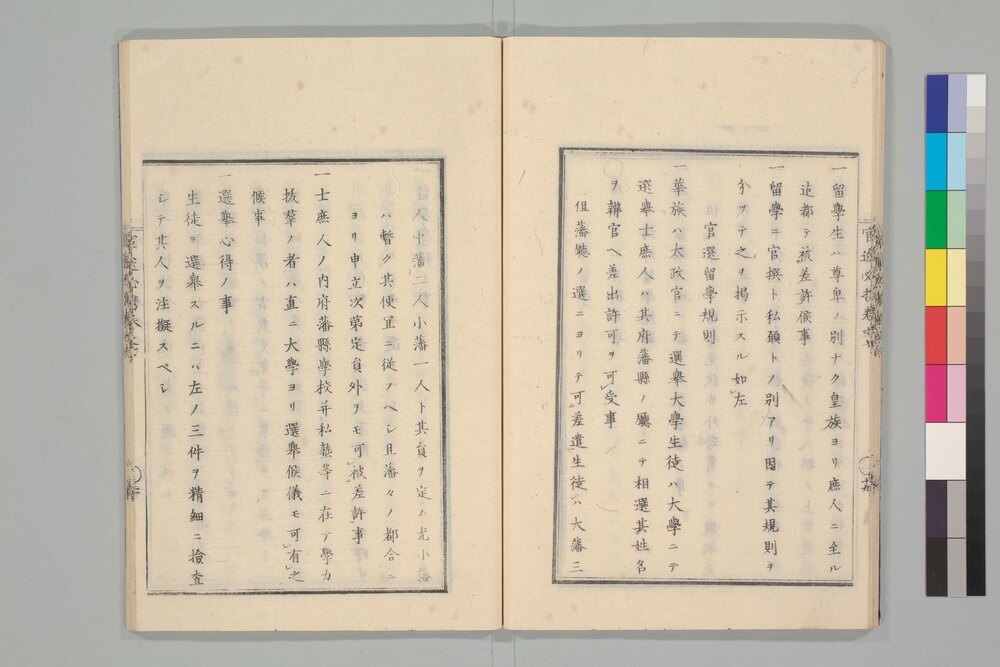 一留學生ハ尊卑ノ別ナク皇族ヨリ庶人ニ至ル
迠都テ被差許候事
一留學ニ官撰ト私願トノ別アリ因テ其規則ヲ
分ツテ之ヲ掲示スル如左
官選留學規則
一華族ハ太政官ニテ選舉大學生徒ハ大學ニテ
選舉士庶人ハ其府藩縣ノ廳ニテ相選其姓名
ヲ辨官ヘ差出許可ヲ可受事
但藩廳ノ選ニヨリテ可差遣生徒ハ大藩三
人中藩二人小藩一人ト其員ヲ定ム尤小藩
ハ暫ク其便冝ニ從フヘシ且藩々ノ都合ニ
ヨリ申立次第定員外ヲモ可被差許事
一士庶人ノ内府藩縣學校并私塾等ニ在テ學力
抜羣ノ者ハ直ニ大學ヨリ選舉候儀モ可有之
候事
一選舉心得ノ事
生徒ヲ選舉スルニハ左ノ三件ヲ精細ニ撿査
シテ其人ヲ注擬スベシ